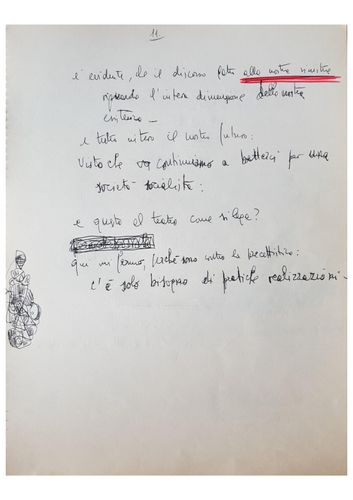 11
è evidente, che il discorso fatto alla nostra sinistra
riguarda l'intera dimensione della nostra
esistenza –
e tutto intero il nostro futuro:
visto che continuiamo a batterci per una
società socialista:
e questo al teatro come si lega?
qui mi fermo, sono contro la precettistica:
c'è solo bisogno di pratiche realizzazioni –